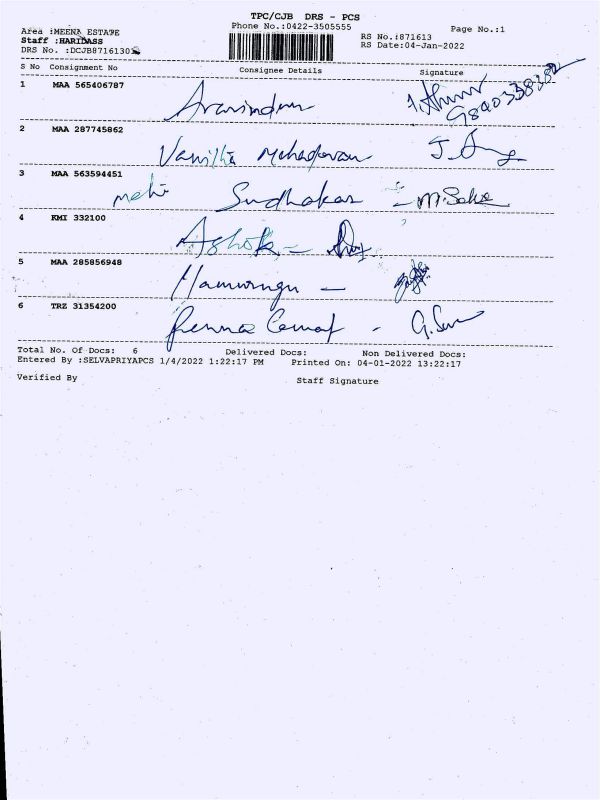 TPC/CJB DRS - PCS
Phone No.:0422-3505555
Page No.:1
Area :MEENA ESTATE
Staff :HARIDASS
RS No.:871613
DRS No. :DCJB871613013
RS Date:04-Jan-2022
S No Consignment No Consignee Details Signature
1 MAA 565406787
Aravindan
9840338382
2 MAA 287745862
Vanitha Mahadevan
3 MAA 563594451
Sudhakar
4 KMI 332100
Ashok -
5 MAA 285856948
-
6 TRZ 31354200
-
Total No. Of Docs: 6 Delivered Docs: Non Delivered Docs:
Entered By :SELVAPRIYAPCS 1/4/2022 1:22:17 PM Printed On: 04-01-2022 13:22:17
Verified By Staff Signature